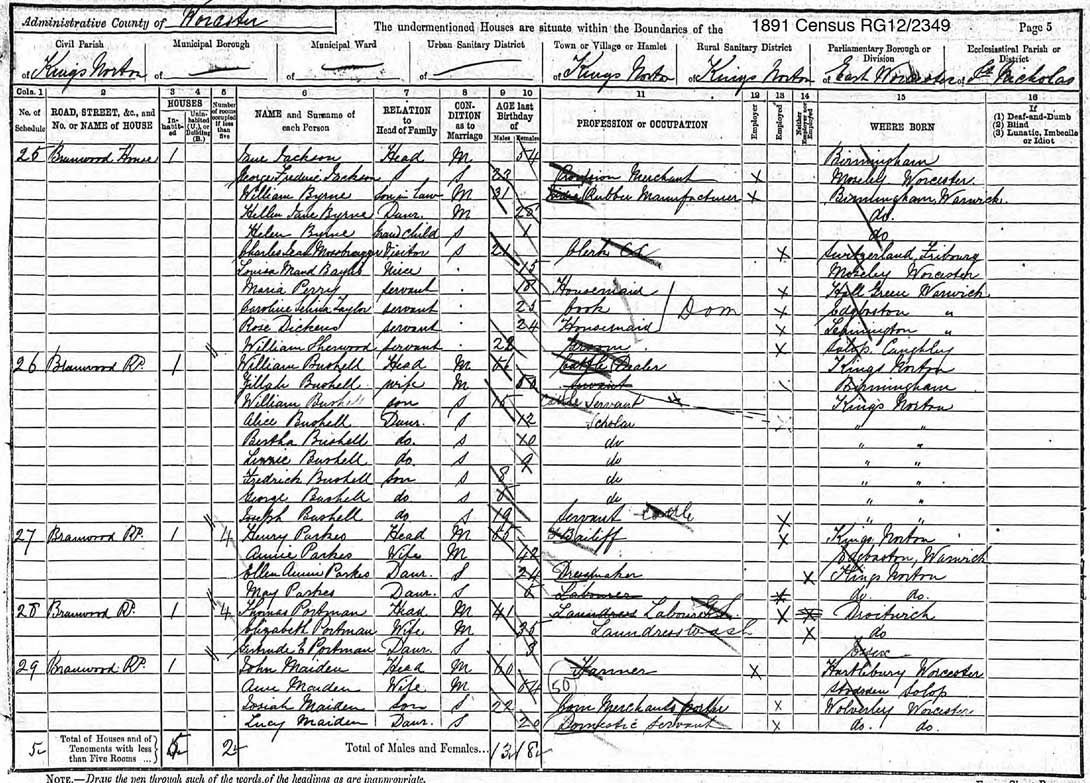 Administrative County of Worcester
The undermentioned Houses are situate within the Boundaries of the
1891 Census RG12/2349
Page 5
Civil Parish
Municipal Borough
Municipal Ward
Urban Sanitary District
Town or Village or Hamlet
Rural Sanitary District
Parliamentary Borough or Division
Ecclesiastical Parish or District
of Kings Norton of of of of Kings Norton of Kings Norton of East Worcester of St. Nicholas
Cols. 1 2 3 4 5 6 7 8 9 10 11 12 13 14 15 16
No. of Schedule
ROAD, STREET, &c., and No. or NAME of HOUSE
HOUSES
Inhabited
Uninhabited (U.), or Building (B.)
Number of rooms occupied if less than five
NAME and Surname of each Person
RELATION to Head of Family
CONDITION as to Marriage
AGE last Birthday of
Males Females
PROFESSION or OCCUPATION
Employer
Employed
Neither Employer nor Employed
WHERE BORN
If
(1) Deaf-and-Dumb
(2) Blind
(3) Lunatic, Imbecile or Idiot
25 Branwood House 1 Jane Jackson Head M 54 Birmingham
George Frederic Jackson S S 23 Provision Merchant X Moseley Worcester
William Byrne Son in Law M 31 India Rubber Manufacturer X Birmingham, Warwick
Hellen Jane Byrne Daur. M 28 do.
Helen Byrne Grand child S 1 do
Charles Visitor S 21 Clerk X Switzerland, Fribourg
Louisa Maud Bayliss Niece 15 Moseley Worcester
Maria Perry servant 18 Housemaid Dom X Hall Green Warwick
Caroline Selina Taylor servant 25 Cook X Edgbaston "
Rose Dickens servant 24 Housemaid X Leamington "
William Sherwood servant 22 Groom X Salop
26 Branwood Rd. 1 William Bushell Head M 56 Cattle Dealer Kings Norton
Bushell wife M 50 Birmingham
William Bushell son S 15 Servant Kings Norton
Alice Bushell Daur. S 12 Scholar " "
Bertha Bushell do. S 10 do " "
Lizzie Bushell do. S 9 do " "
Fredrick Bushell son S 8 do " "
George Bushell do S do " "
Joseph Bushell do S 19 Servant Cattle X " "
27 Branwood Rd. 1 4 Henry Parkes Head M Bailiff X Kings Norton
Annie Parkes Wife M 42 Edgbaston, Warwick
Ellen Annie Parkes Daur. S 24 Dressmaker X Kings Norton
May Parkes Daur. S 6 Labourer X do. do.
28 Branwood Rd. 1 4 Thomas Portman Head M 41 Laundress Labourer X Droitwich
Elizabeth Portman Wife M 35 Laundress Wash X do
Gertrude E Portman Daur. S 8 Essex
29 Branwood Rd. 1 John Maiden Head M 60 Farmer X Hartlebury Worcester
Ann Maiden Wife M 54 50 Salop
Josiah Maiden son S 22 Corn Merchants Porter X Wolverley Worcester
Lucy Maiden Daur. S 20 Domestic Servant X do. do.
5 Total of Houses and of Tenements with less than Five Rooms ... 5 2 Total of Males and Females... 13 18
NOTE.—Draw the pen through such of the words of the headings as are inappropriate.